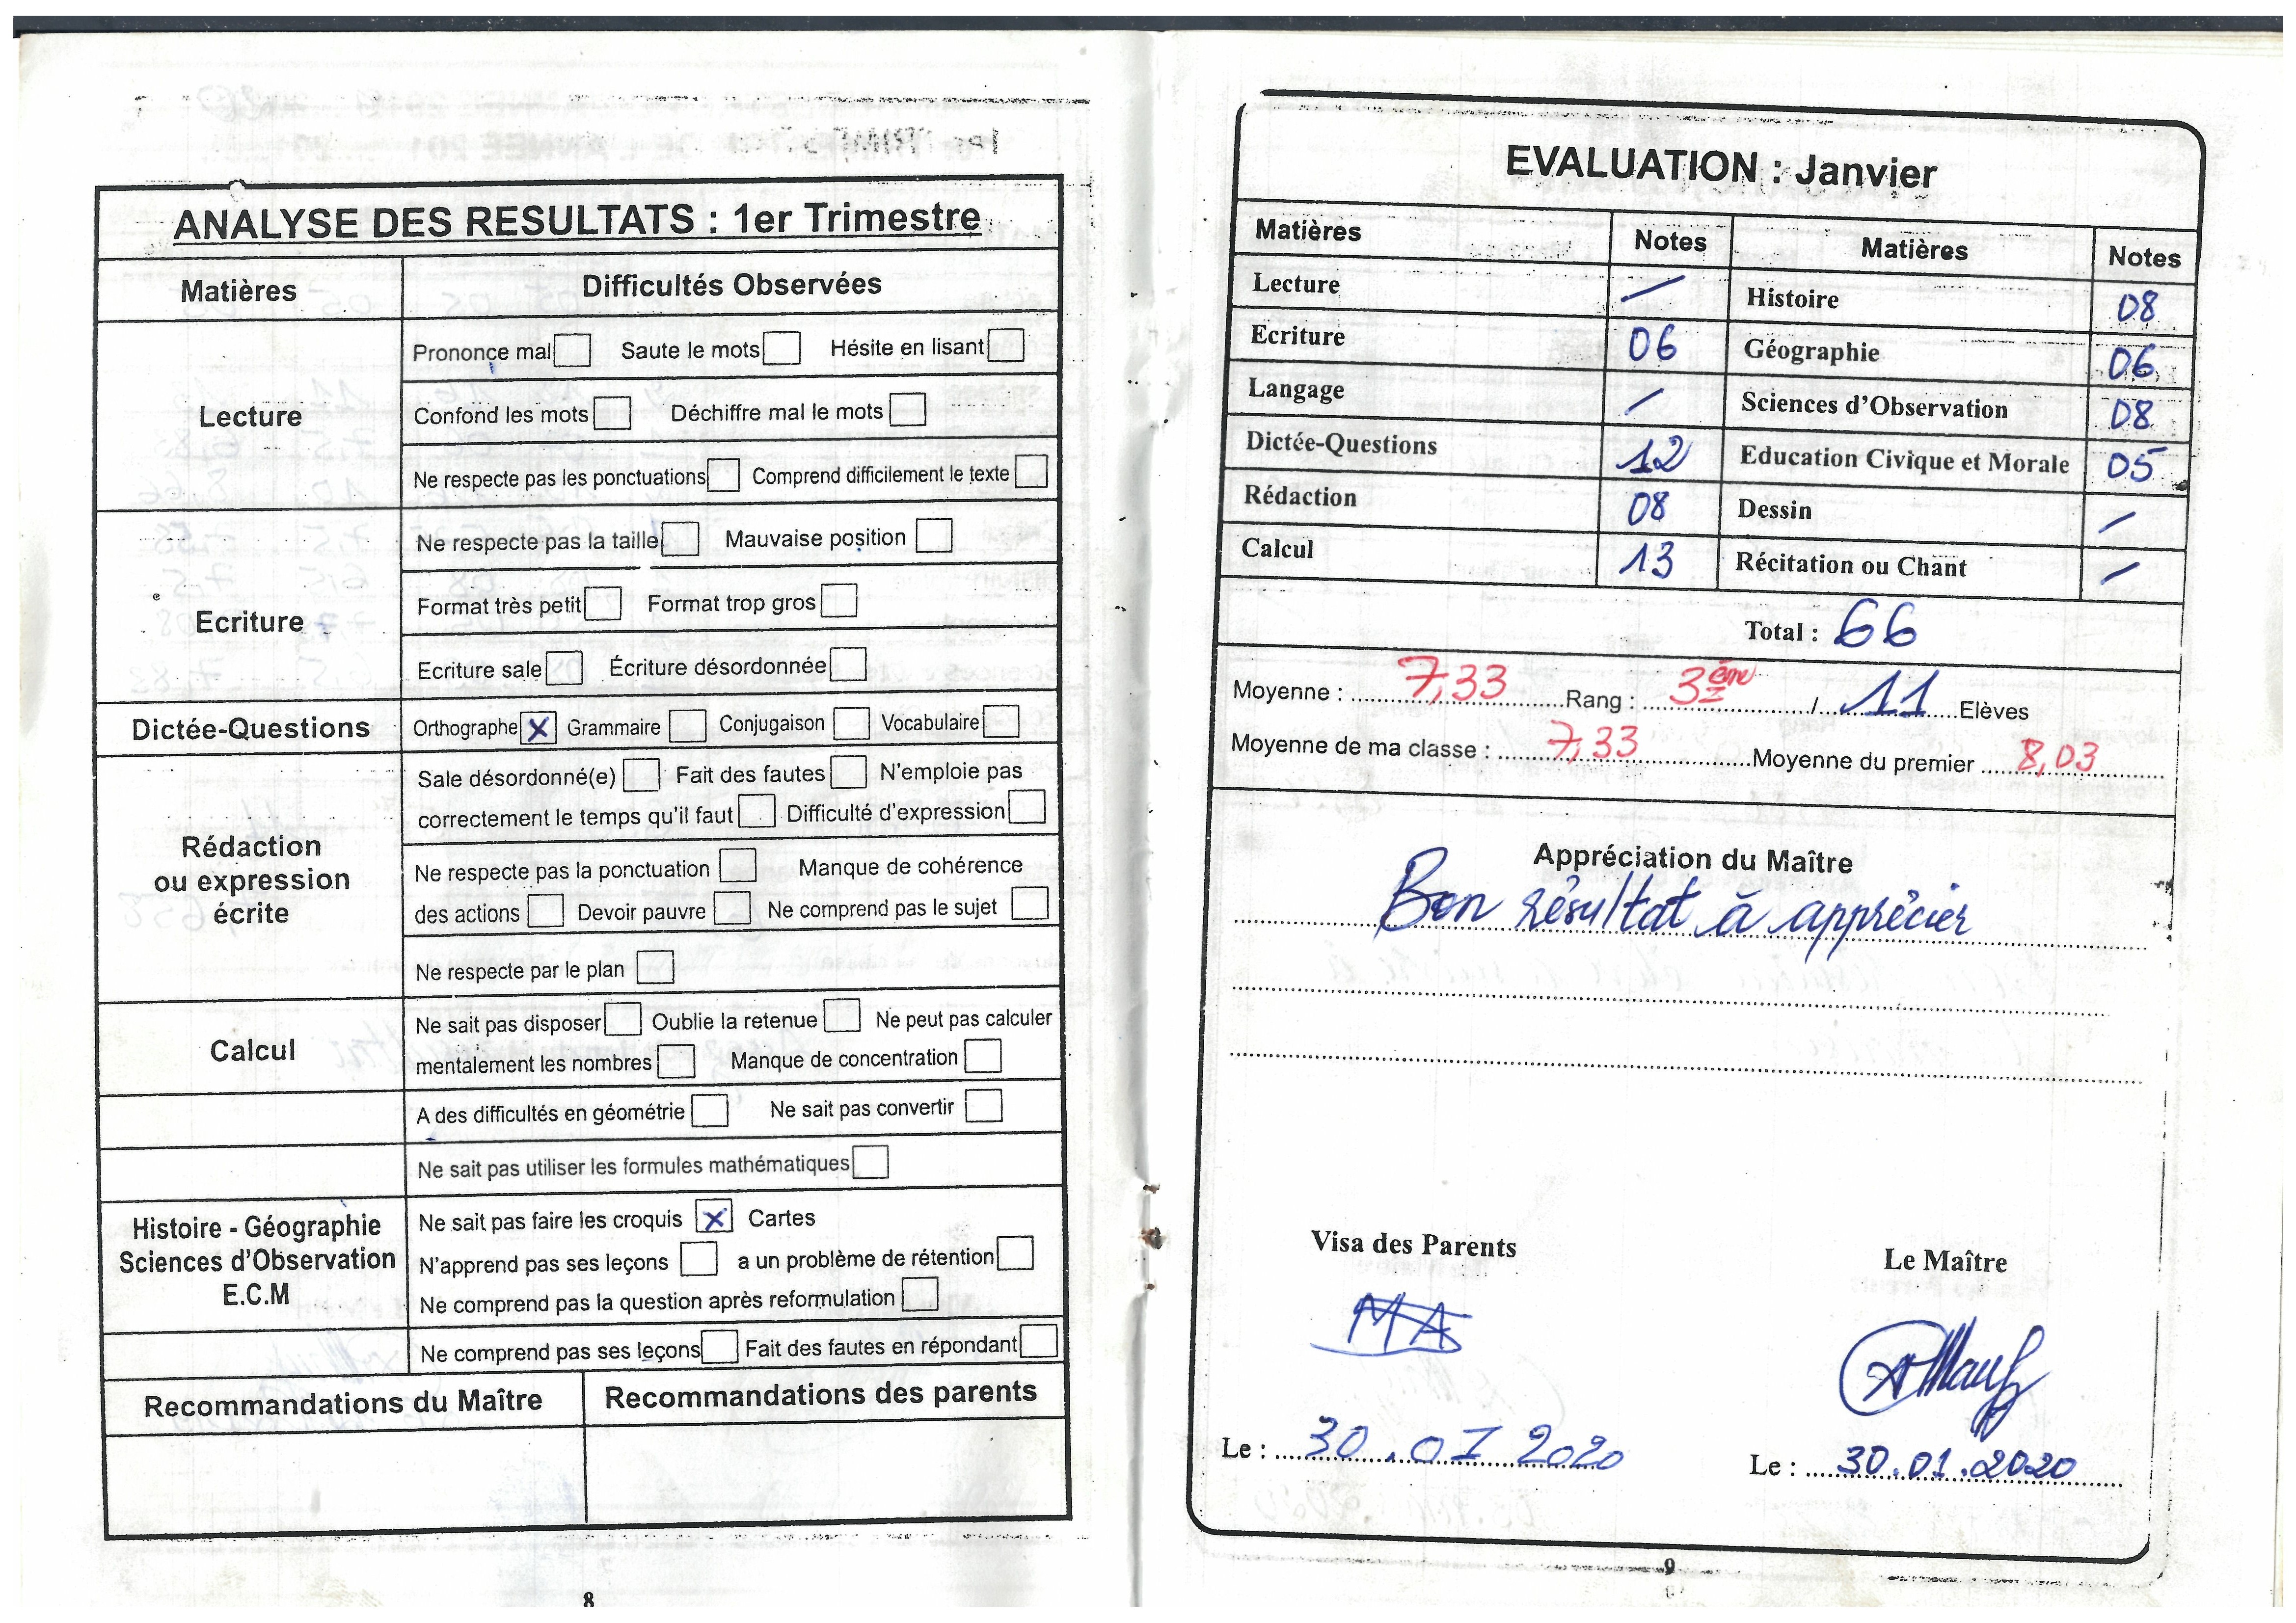 ANALYSE DES RESULTATS : 1er Trimestre
Matières Difficultés Observées
Lecture
Prononce mal Saute le mots Hésite en lisant
Confond les mots Déchiffre mal le mots
Ne respecte pas les ponctuations Comprend difficilement le texte
Ecriture
Ne respecte pas la taille Mauvaise position
Format très petit Format trop gros
Ecriture sale Écriture désordonnée
Dictée-Questions Orthographe X Grammaire Conjugaison Vocabulaire
Rédaction
ou expression
écrite
Sale désordonné(e) Fait des fautes N'emploie pas
correctement le temps qu'il faut Difficulté d'expression
Ne respecte pas la ponctuation Manque de cohérence
des actions Devoir pauvre Ne comprend pas le sujet
Ne respecte par le plan
Calcul
Ne sait pas disposer Oublie la retenue Ne peut pas calculer
mentalement les nombres Manque de concentration
A des difficultés en géométrie Ne sait pas convertir
Ne sait pas utiliser les formules mathématiques
Histoire - Géographie
Sciences d'Observation
E.C.M
Ne sait pas faire les croquis X Cartes
N'apprend pas ses leçons a un problème de rétention
Ne comprend pas la question après reformulation
Ne comprend pas ses leçons Fait des fautes en répondant
Recommandations du Maître Recommandations des parents
8
EVALUATION : Janvier
Matières Notes Matières Notes
Lecture / Histoire 08
Ecriture 06 Géographie 06
Langage / Sciences d'Observation 08
Dictée-Questions 12 Education Civique et Morale 05
Rédaction 08 Dessin /
Calcul 13 Récitation ou Chant /
Total : 66
Moyenne : 7,33 Rang : 3ème / 11 Elèves
Moyenne de ma classe : 7,33 Moyenne du premier 8,03
Appréciation du Maître
Bon résultat à apprécier
Visa des Parents Le Maître
MA
Le : 30.01 2020 Le : 30.01.2020
9